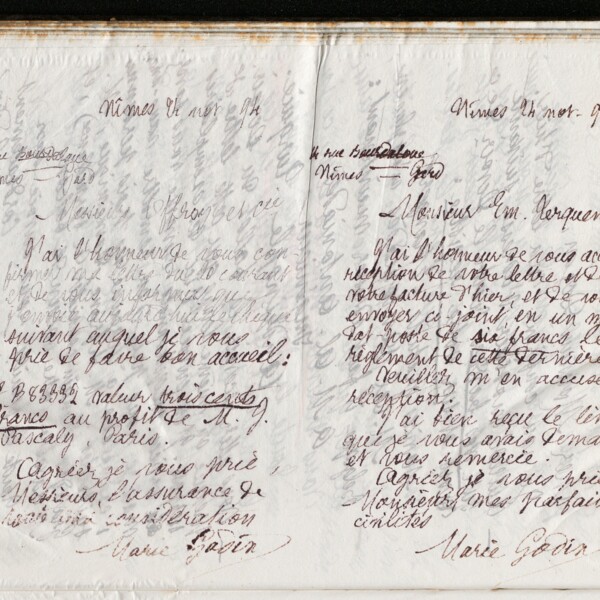 Nîmes 24 nov 94
Nîmes Gard
J'ai l'honneur de vous con-
firmer ma lettre du 20 courant
et de vous informer que
suivant auquel je vous
prie de faire bon accueil :
B 83332 valeur trois cents
francs au profit de M. J.
Pascaly, Paris.
Agréez, je vous prie,
Messieurs, l'assurance de
considération
Marie Godin
Nîmes 24 nov- 9
14 rue Bourdaloue
Nîmes — Gard
Monsieur Em.
J'ai l'honneur de vous acc
réception de votre lettre et d
votre facture d'hier, et de vo
envoyer ci-joint, en un m
dat poste de six francs le
règlement de cette dernière
Veuillez m'en accuse
réception.
J'ai bien reçu le
que je vous avais dema
et vous remercie.
Agréez je vous prie
Monsieur mes parfai
civilités
Marie Godin